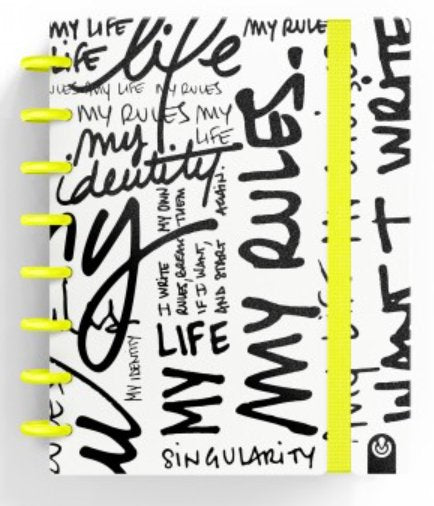 MY LIFE
MY RULE
LIFE
life
MY LIFE MY RULES
MY RULES MY
LIFE
my
identity
I WRITE MY OWN
RULES, BREAK THEM
IF I WANT,
AND START AGAIN.
MY RULES.
I WANT
I WRITE
my
MY IDENTITY
MY LIFE
SINGULARITY